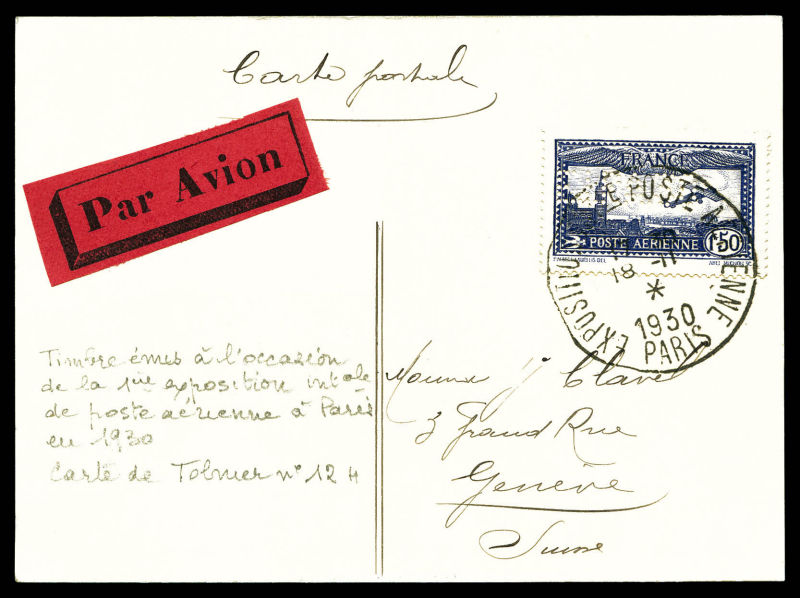 Carte postale
Par Avion
FRANCE
POSTE AÉRIENNE
1f50
EXPOSITION POSTE AÉRIENNE
18 -11
*
1930
PARIS
Timbre émis à l'occasion
de la 1ère exposition intale
de poste aérienne à Paris
en 1930
Carte de Tolmer n° 12 H
J Clavel
3 Grand Rue
Genève
Suisse